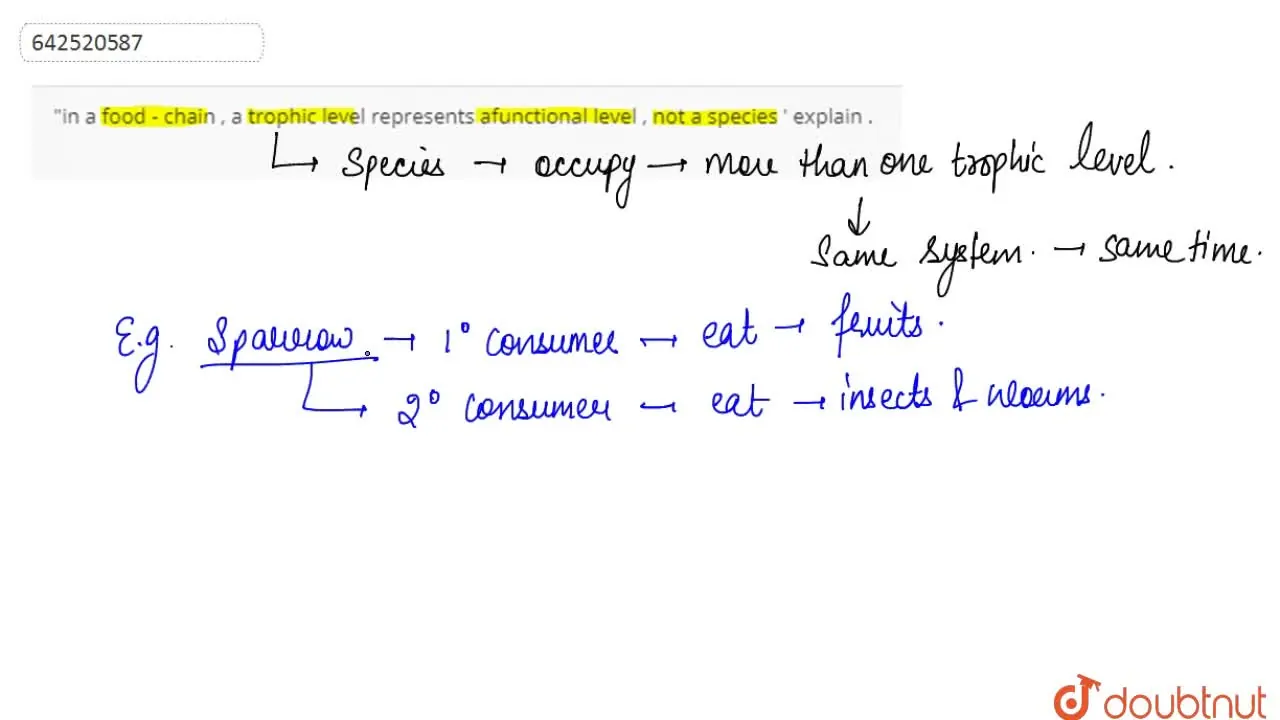 642520587
"in a food - chain , a trophic level represents afunctional level , not a species ' explain .
↳ Species → occupy → more than one trophic level.
↓
Same system. → same time.
E.g. Sparrow. → 1° consumer → eat → fruits.
↳ 2° consumer → eat → insects & worms.
doubtnut